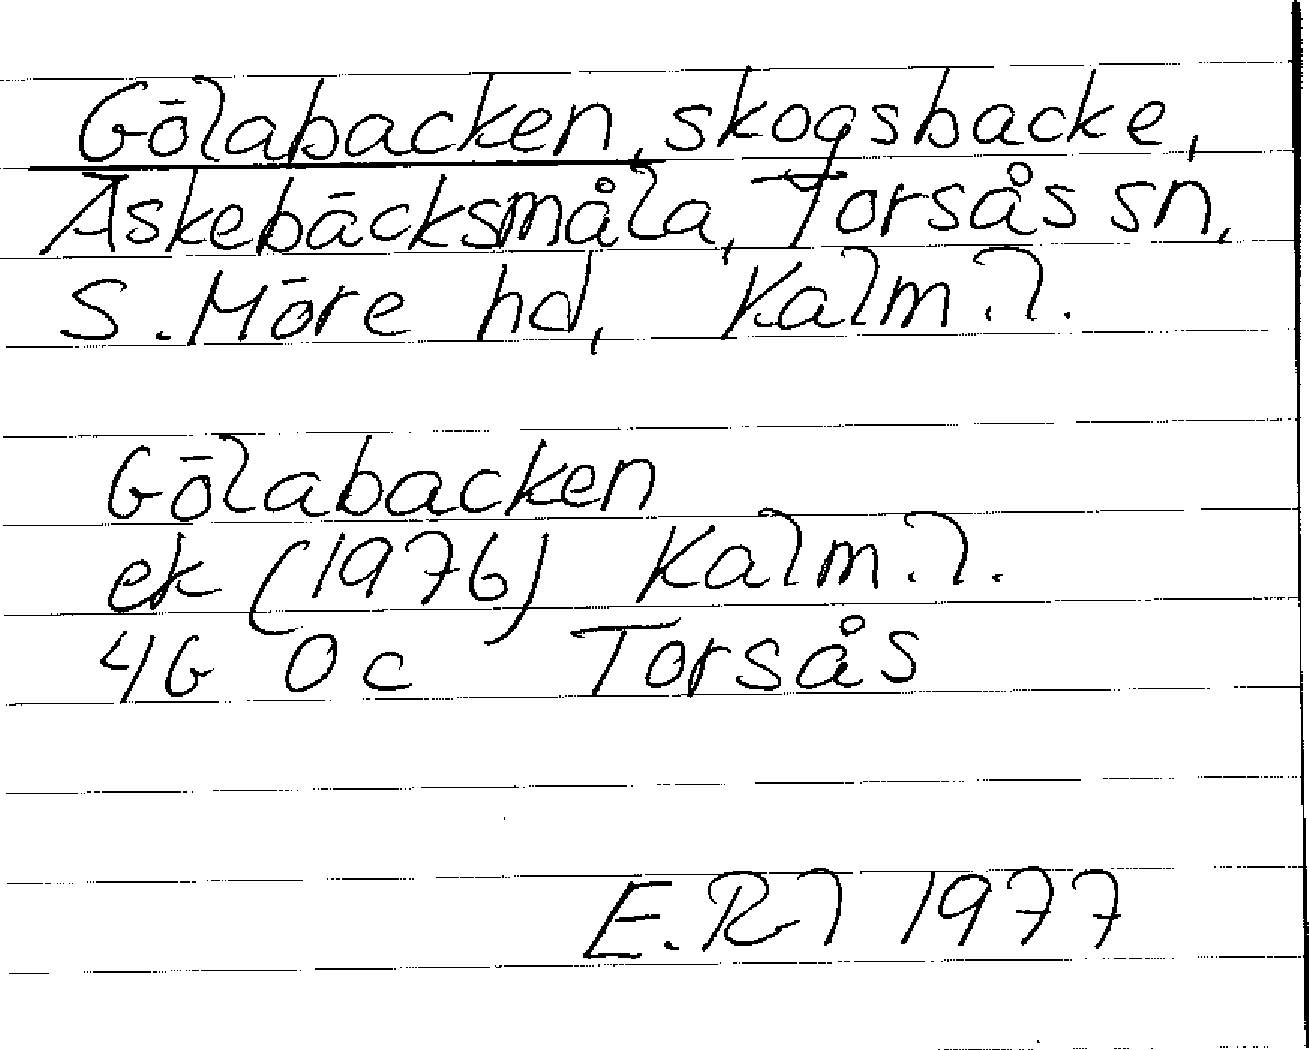 Gölabacken, skogsbacke,
Äskebäcksmåla, Torsås sn,
S. Möre hd, Kalm. l.
Gölabacken
ek (1976) Kalm. l.
4G 0c Torsås
E. Rl 1977